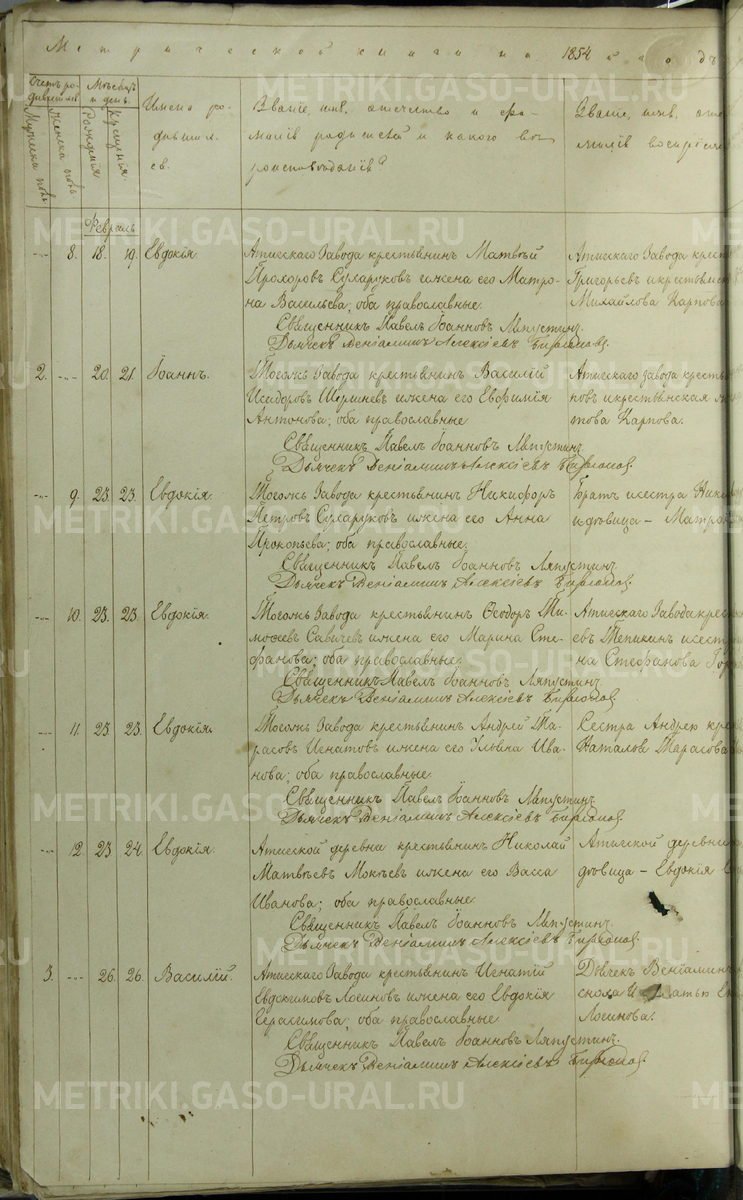 Метрической книги на 1854 годъ
Счетъ родившихся
Мѣсяцъ и день
Мужеска полъ
Женска полъ
Рожденія
Крещенія
Имена родившихся.
Званіе, имя, отчество и фамилія родителей и какого вѣроисповѣданія?
Званіе, имя, отче
милія воспріем
Февраль
8. 18. 19. Евдокія.
Атигскаго Завода крестьянинъ Матвѣй
Прохоровъ Сухоруковъ и жена его Матро-
на Васильева; оба православные.
Священникъ Павелъ Іоанновъ Ляпустинъ
Дьячекъ Веніаминъ Алексіевъ
Атигскаго Завода крест
Григорьевъ и крестьянск
Михайлова Карпова
2. 20. 21. Іоаннъ.
Тогожъ Завода крестьянинъ Василій
Исидоровъ и жена его Евфимія
Антонова; оба православные
Священникъ Павелъ Іоанновъ Ляпустинъ
Дьячекъ Веніаминъ Алексіевъ
Атигскаго завода кресть
повъ и крестьянская
това Карпова.
9. 23. 23. Евдокія.
Тогожъ Завода крестьянинъ Никифоръ
Петровъ Сухоруковъ и жена его Анна
Прокопьева; оба православные.
Священникъ Павелъ Іоанновъ Ляпустинъ
Дьячекъ Веніаминъ Алексіевъ
Братъ и сестра Ники
и дѣвица – Матро
10. 23. 23. Евдокія.
Тогожъ Завода крестьянинъ Ѳеодоръ Ти-
моѳеевъ Савичевъ и жена его Марина Сте-
фанова; оба православные.
Священникъ Павелъ Іоанновъ Ляпустинъ
Дьячекъ Веніаминъ Алексіевъ
Атигскаго Завода крес
евъ Тепикинъ и сест
на Стефанова
11. 23. 23. Евдокія.
Тогожъ Завода крестьянинъ Андрей Та-
расовъ Игнатовъ и жена его Ульяна Ива-
нова; оба православные.
Священникъ Павелъ Іоанновъ Ляпустинъ
Дьячекъ Веніаминъ Алексіевъ
Сестра Андрею кре
Тарасова
12 23 24. Евдокія.
Атигской деревни крестьянинъ Николай
Матвѣевъ Мокѣевъ и жена его Васса
Иванова; оба православные
Священникъ Павелъ Іоанновъ Ляпустинъ
Дьячекъ Веніаминъ Алексіевъ
Атигской деревни
дѣвица – Евдокія
3. 26. 26. Василій.
Атигскаго Завода крестьянинъ Игнатій
Евдокимовъ Логиновъ и жена его Евдокія
Герасимова; оба православные
Священникъ Павелъ Іоанновъ Ляпустинъ.
Дьячекъ Веніаминъ Алексіевъ
Дьячекъ Веніаминъ
сноха
Логинова.
METRIKI.GASO-URAL.RU